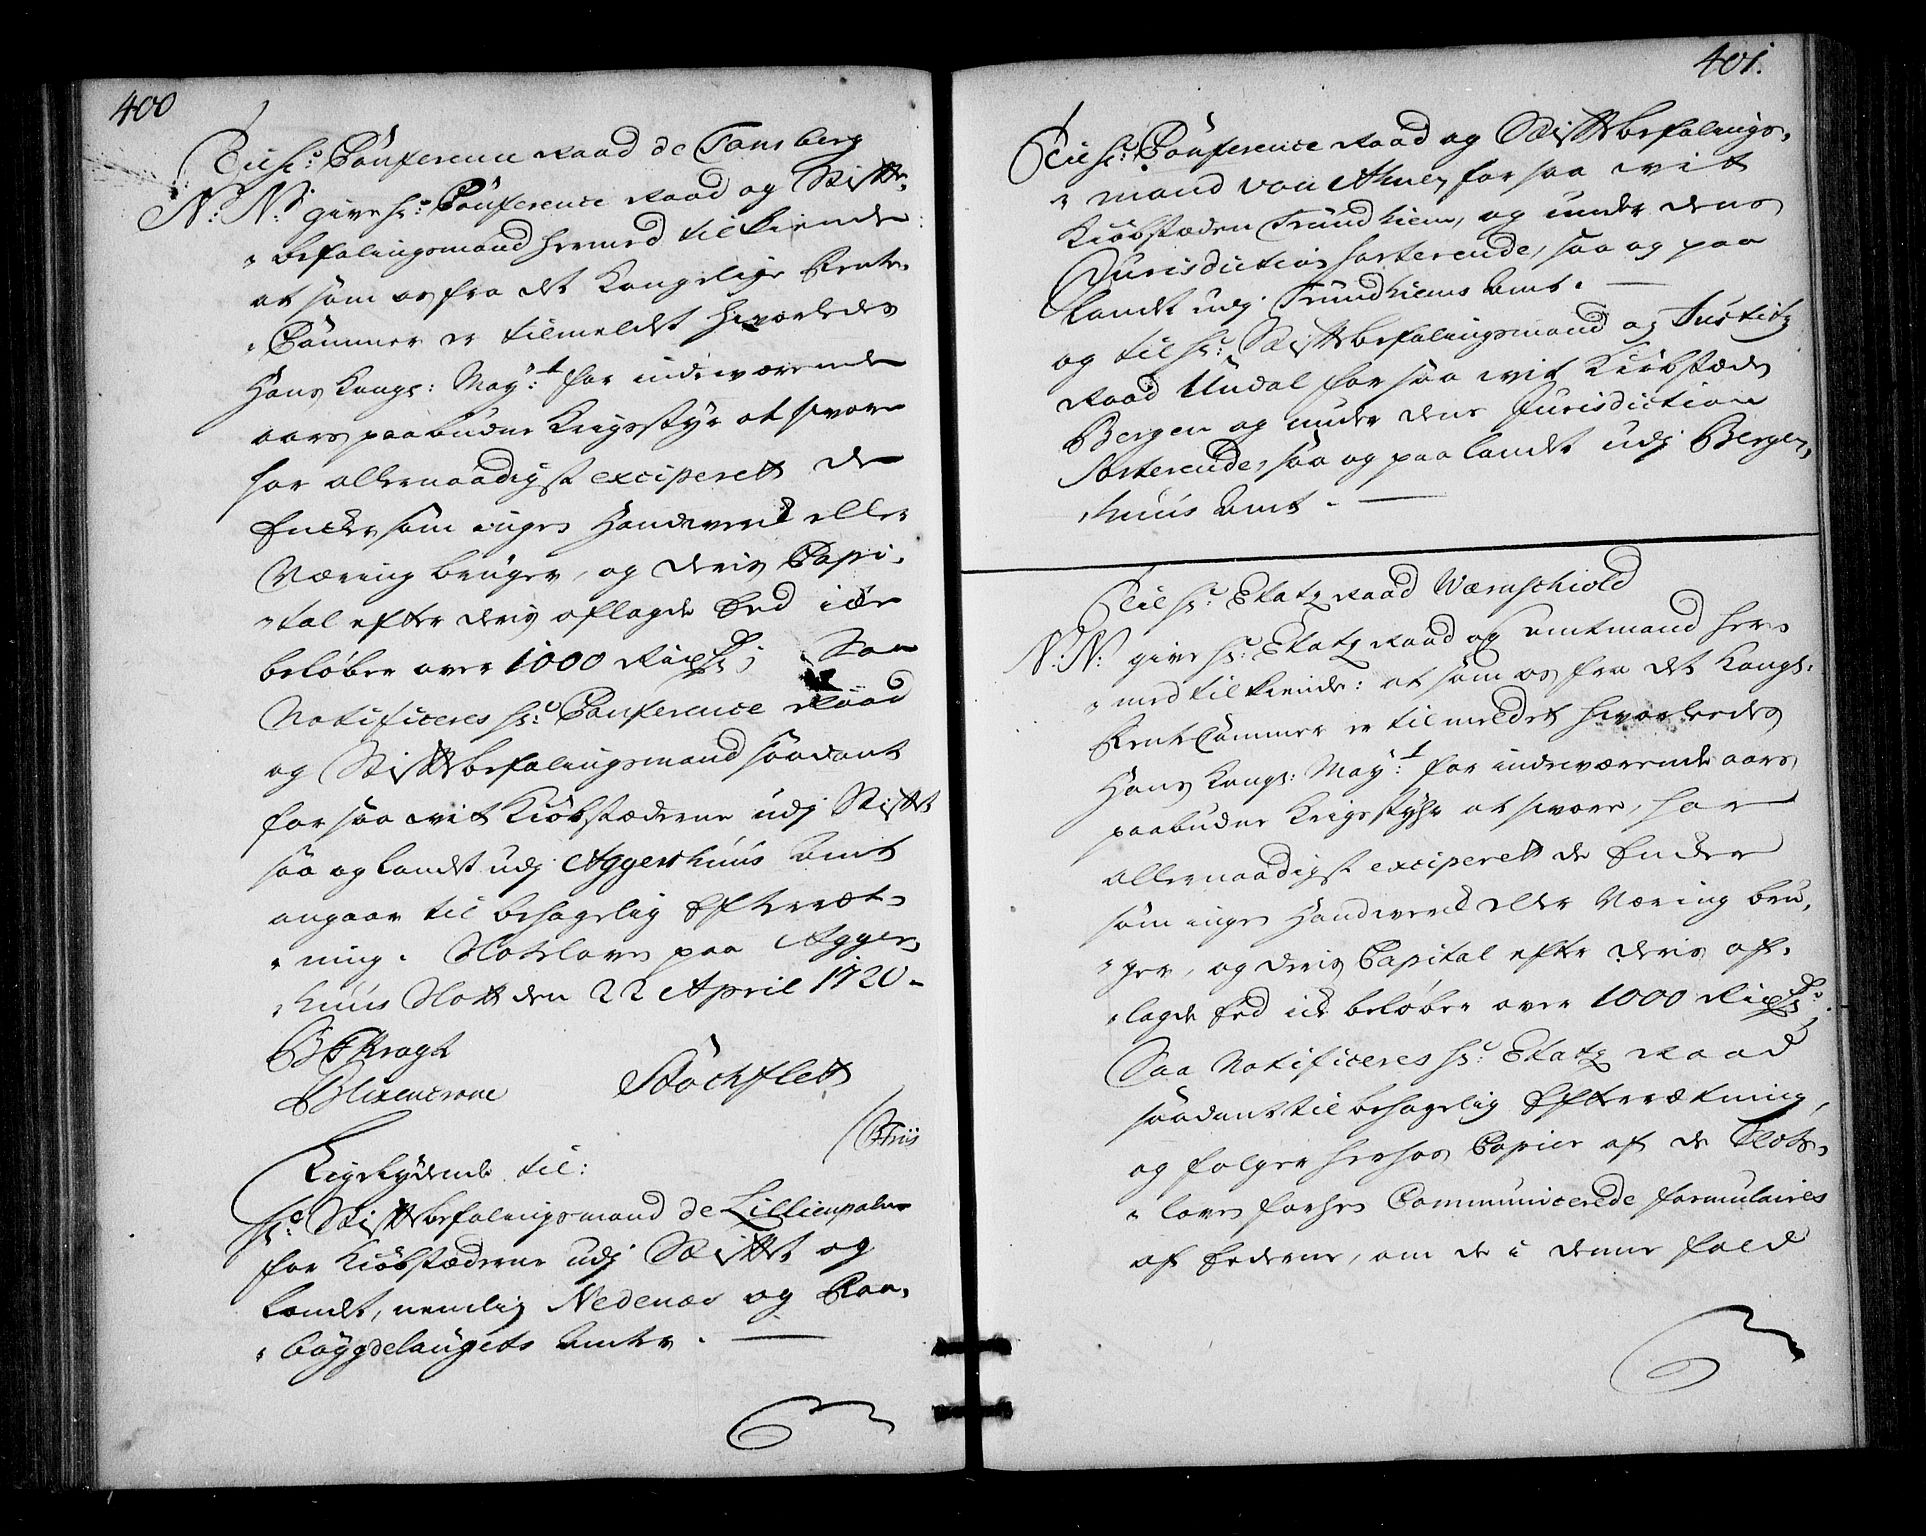 400
Til hr: Conference Raad de Tonsberg
N: N: give hr: Conference Raad og Stifts-
befalingsmand hermed tilkiende
at som os fra det Kongelige Rente-
Cammer er tilmeldet hvorledes
Hans Kongl: May:t for indeværende
aars paabudne Krigsstyr at svare
har allernaadigst exciperett de
Encker som ingen Handverck eller
Næring bruger, og deris Capi-
tal efter deris aflagde Eed icke
beløber over 1000 Rixdr; Saa
Notificeres hr: Conference Raad
og Stifftbefalingsmand saadant
for saa vit Kiøbstæderne udj Stifftet
saa og Landet udj Aggershuus Amt
angaar til behagelig Efterræt-
ning. Slotzloven paa Agger-
huus Slott den 22 April 1720.
Kragh
Blixencrone Stöckflett
/Thiis
Ligelydende til:
hr: Stifftbefalingsmand de Lillienpalm
for Kiøbstæderne udj Stifftet og
Landet, nemlig Nedenæs og Raa-
böygdelaugets Amter.
401.
Til hr: Conference Raad og Stifftbefalings-
mand von Ahnen for saa vit
Kiøbstæden Trundhiem, og under dens
Jurisdiction sorterende, saa og paa
Landet udj Trundhiems Amt.
og til hr: Stifftbefalingsmand og Justitz
Raad Undal for saa vit Kiøbstæden
Bergen og under dens Jurisdiction
Sorterende, saa og paa Landet udj Bergen-
huus Amt.
Til hr: Etatz Raad Wærnschiold
N: N: give hr: Etatz Raad og Amtmand her-
med tilkiende: at som os fra det Kongl:
Rente Cammer er tilmeldet hvorledes
Hans Kongl: May:t for indeværende aars
paabudne Krigsstyhr at svare, har
allernaadigst exciperett de Encker
som ingen Handverck eller Næring bru-
ger, og deris Capital efter deris af-
lagde Eed ick beløber over 1000 Rixdr:
Saa Notificeres hr: Etatz Raad
saadant til behagelig Efterrætning,
og følger herhos Copier af de Slotz-
loven forhen Communicerede formulaires
af Eederne, om de i denne fald